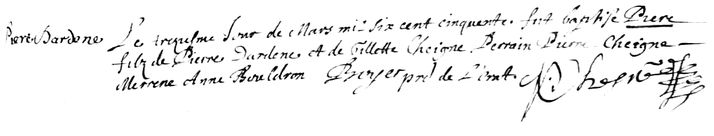 Piere Dardene
Le treiziesme Jour de Mars mil six cent cinquente fut baptisé Piere
filz de Pierre Dardene et de Gillotte Cheigne Perrain Pierre Cheigne
Merrene Anne Bouldron de